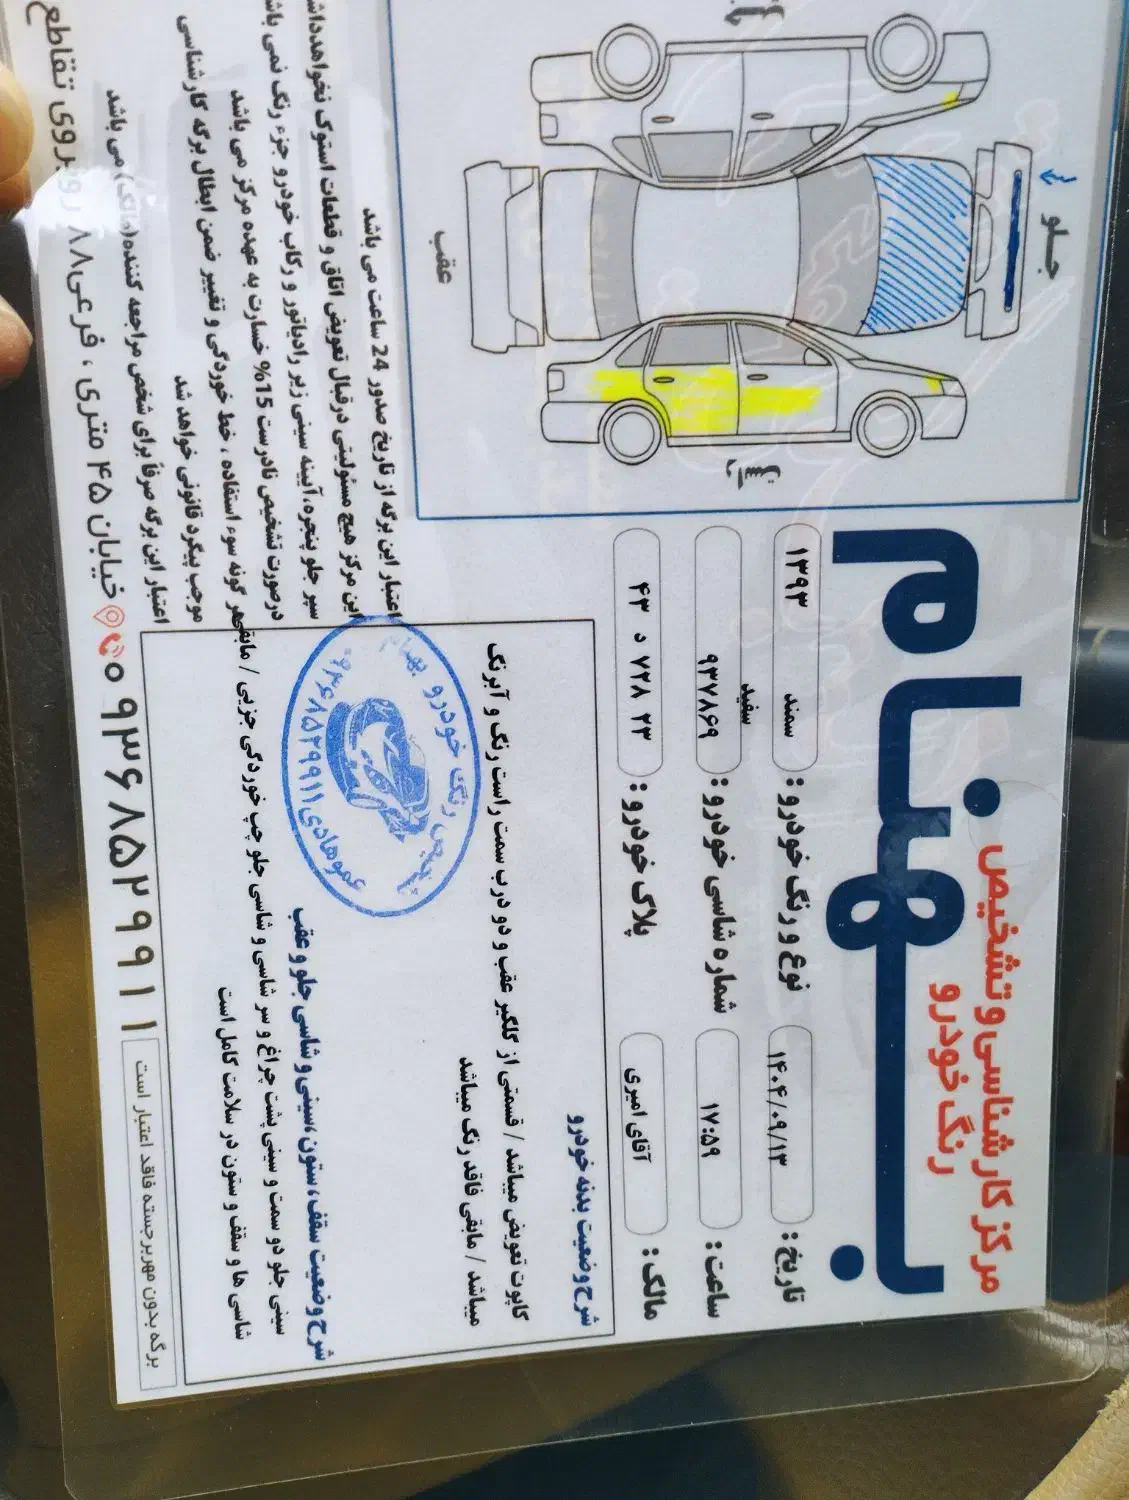 مرکز کارشناسی و تشخیص
رنگ خودرو
بهنام
تاریخ : ۱۴۰۴/۰۹/۱۳
نوع و رنگ خودرو : سمند ۱۳۹۳
سفید
ساعت : ۱۷:۵۹
شماره شاسی خودرو : ۹۳۷۸۶۹
مالک : آقای امیری
پلاک خودرو : ۲۳ ۷۲۸ د ۴۳
جلو
عقب
شرح وضعیت بدنه خودرو
کاپوت تعویض میباشد / قسمتی از گلگیر عقب و دو درب سمت راست رنگ و آبرنگ
میباشد / مابقی فاقد رنگ میباشد
شرح وضعیت سقف، ستون، سینی و شاسی جلو و عقب
سینی جلو دو سمت و سینی پشت چراغ و سر شاسی و شاسی جلو چپ خوردگی جزیی / مابقی
شاسی ها و سقف و ستون در سلامت کامل است
تشخیص رنگ خودرو بهنام
عموهادی ۰۹۳۶۸۵۲۹۹۱۱
اعتبار این برگه از تاریخ صدور 24 ساعت می باشد
این مرکز هیچ مسئولیتی در قبال تعویض اتاق و قطعات استوک نخواهد
سپر جلو پنجره آیینه سینی زیر رادیاتور و رکاب خودرو جزء رنگ نمی
درصورت تشخیص نادرست 15% خسارت به عهده مرکز می باشد
هر گونه سوء استفاده ، خط خوردگی و تغییر ضمن ابطال برگه کارشناسی
موجب پیگرد قانونی خواهد شد
اعتبار این برگه صرفاً برای شخص مراجعه کننده(مالک) می باشد
برگه بدون مهر برجسته فاقد اعتبار است
۰۹۳۶۸۵۲۹۹۱۱
خیابان ۴۵ متری ، فرعی ۸۸ روبروی تقاطع